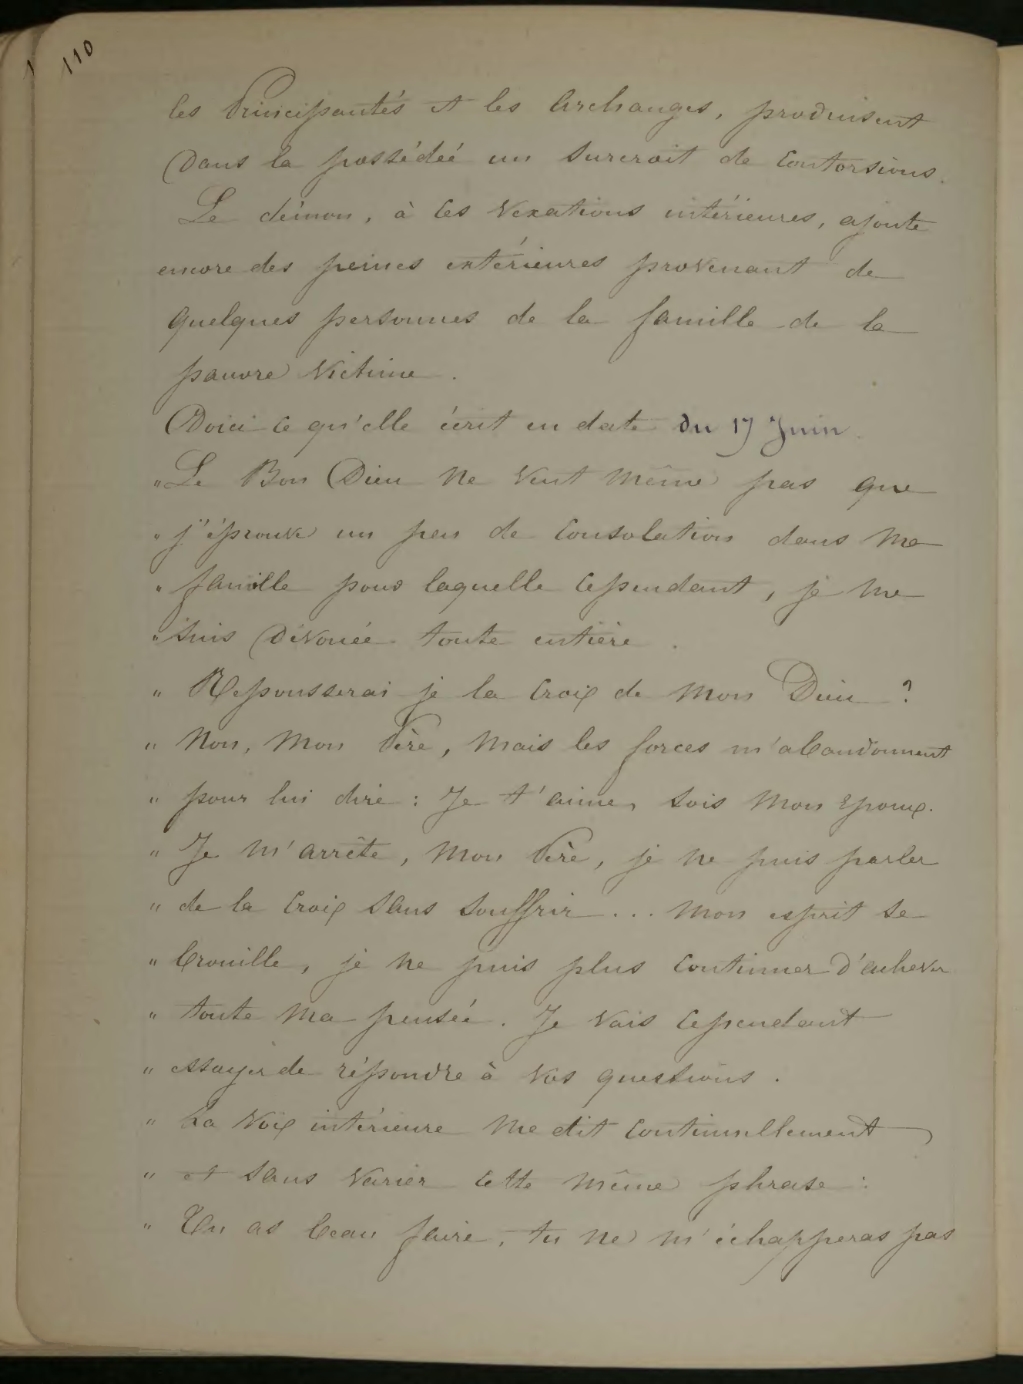 110
les Principautés et les Archanges, produisent
Dans la possédée un surcroit de Contorsions.
Le démon, à ces vexations intérieures, ajoute
encore des peines extérieures provenant de
quelques personnes de la famille de la
pauvre victime.
Voici ce qu'elle écrit en date du 17 Juin.
" Le Bon Dieu ne veut même pas que
" j'éprouve un peu de consolation dans ma
" famille pour laquelle cependant, je me
" suis Dévouée toute entière.
" Repousserai je la Croix de mon Dieu ?
" Non, Mon Père, mais les forces m'abandonnent
" pour lui dire : Je t'aime, sois mon Epoux.
" Je m'arrête, mon Père, je ne puis parler
" de la Croix sans souffrir... mon esprit se
" brouille, je ne puis plus continuer d'achever
" toute ma pensée. Je vais cependant
" essayer de répondre à vos questions.
" La Voix intérieure me dit continuellement
" et sans varier cette même phrase :
" Tu as beau faire, tu ne m'échapperas pas